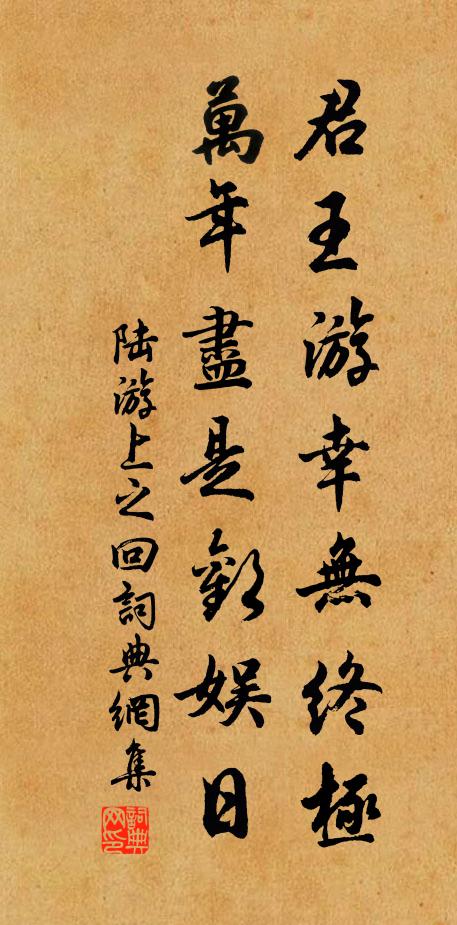 君王游幸無終極
萬年盡是歡娱日
陆游上之回詞典網集
詞典网印